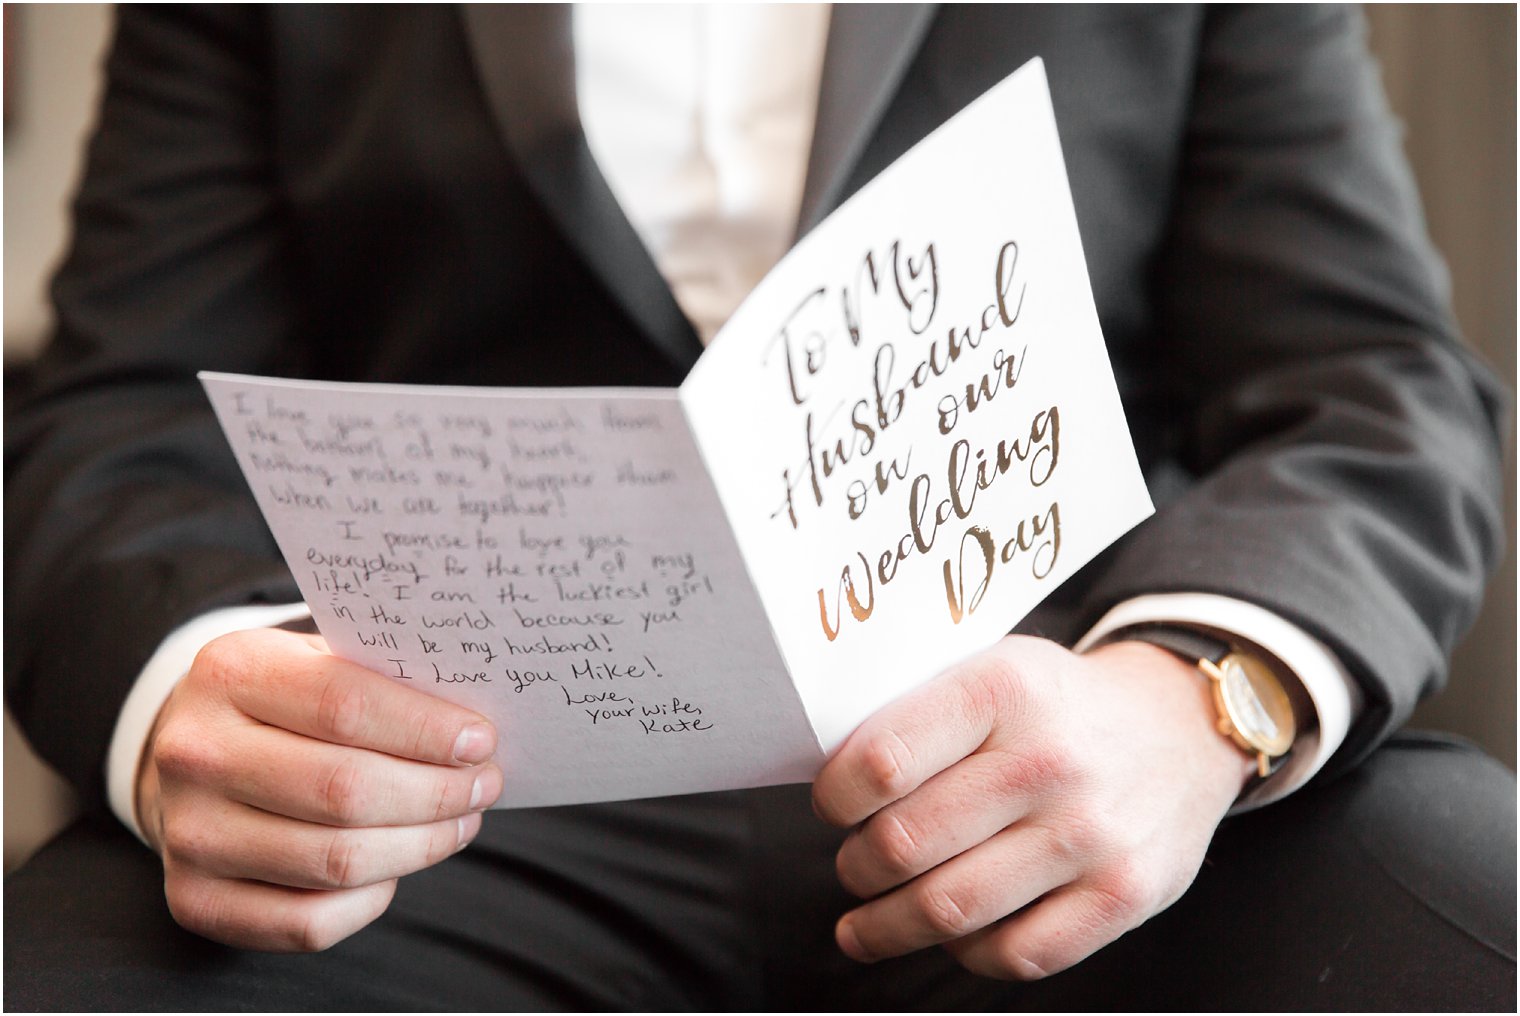 I love you so very much from
the bottom of my heart,
nothing makes me happier than
when we are together!
I promise to love you
everyday for the rest of my
life! I am the luckiest girl
in the world because you
will be my husband!
I Love you Mike!
Love,
your wife,
Kate
To My
Husband
on our
Wedding
Day